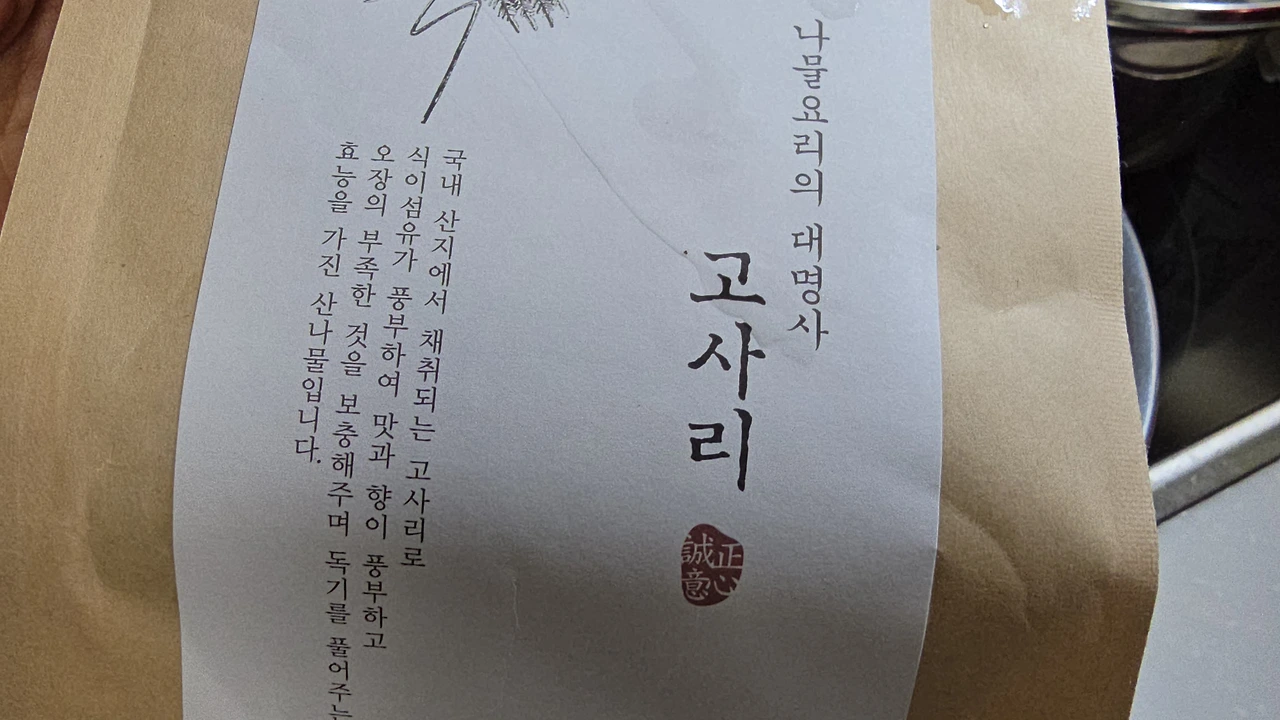 나물요리의 대명사
고사리
正心
誠意
국내 산지에서 채취되는 고사리로
식이섬유가 풍부하여 맛과 향이 풍부하고
오장의 부족한 것을 보충해주며 독기를 풀어주는
효능을 가진 산나물입니다.